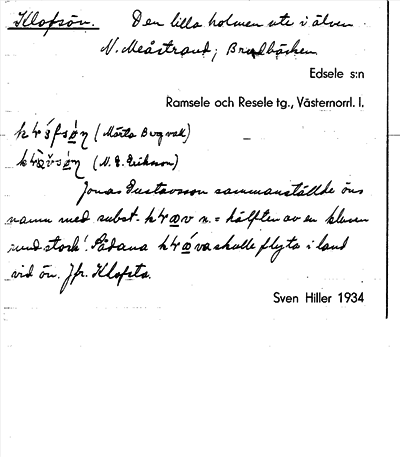 Klofsön. Den lilla holmen ute i älven
N. Meåstrand; Bredbäcken
Edsele s:n
Ramsele och Resele tg., Västernorrl. l.
(Märta Bergvall)
(N. E. Erikson)
Jonas Gustavsson sammanställde öns
namn med subst. n. = hälften av en kluven
rundstock'. Sådana skulle flyta i land
vid ön. Jfr. Klofsta.
Sven Hiller 1934